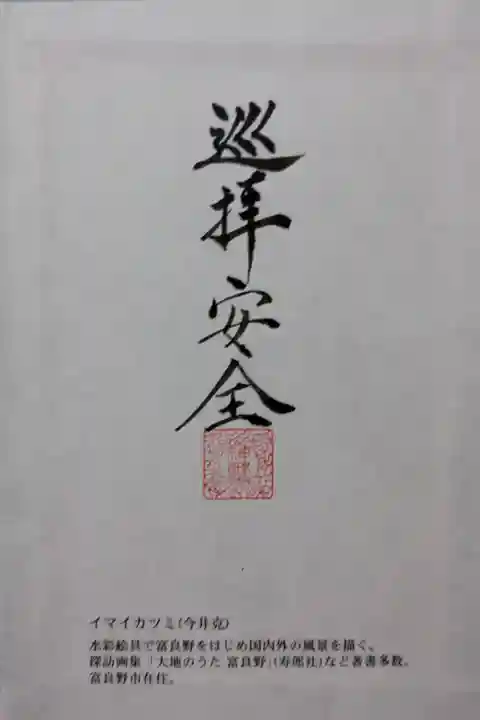 巡拝安全
イマイカツミ(今井克)
水彩絵具で富良野をはじめ国内外の風景を描く。
探訪画集「大地のうた 富良野」(寿郎社)など著書多数。
富良野市在住。